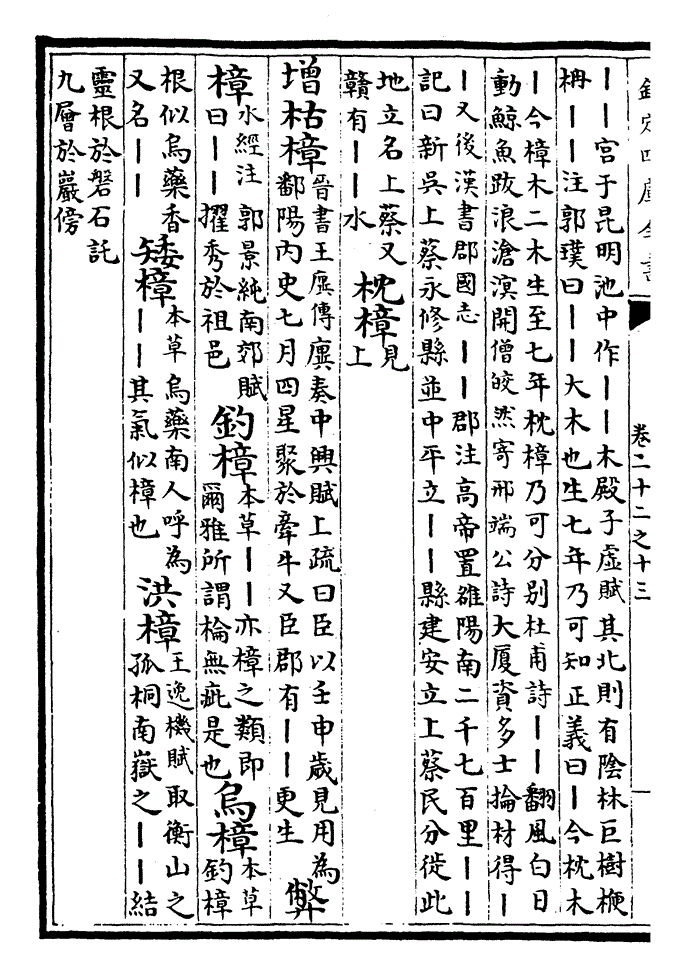 欽定四庫全書
卷二十二之十三
——宮于昆明池中作——木殿子虛賦其北則有陰林巨樹楩
柟——注郭璞曰——大木也生七年乃可知正義曰—今枕木
—今樟木二木生至七年枕樟乃可分别杜甫詩——翻風白日
動鯨魚跋浪滄溟開僧皎然寄邢端公詩大厦資多士掄材得—
—又後漢書郡國志——郡注高帝置雒陽南二千七百里——
記曰新吳上蔡永修縣並中平立——縣建安立上蔡民分徙此
地立名上蔡又
贛有——水
枕樟
見
上
增
枯樟
晉書王廙傳廙奏中興賦上疏曰臣以壬申歲見用為
鄱陽内史七月四星聚於牽牛又臣郡有——更生
弊
樟
水經注郭景純南郊賦
曰——擢秀於祖邑
釣樟
本草——亦樟之類即
爾雅所謂棆無疵是也
烏樟
本草
釣樟
根似烏藥香
又名——
矮樟
本草烏藥南人呼為
——其氣似樟也
洪樟
王逸機賦取衡山之
孤桐南嶽之——結
靈根於磐石託
九層於巖傍